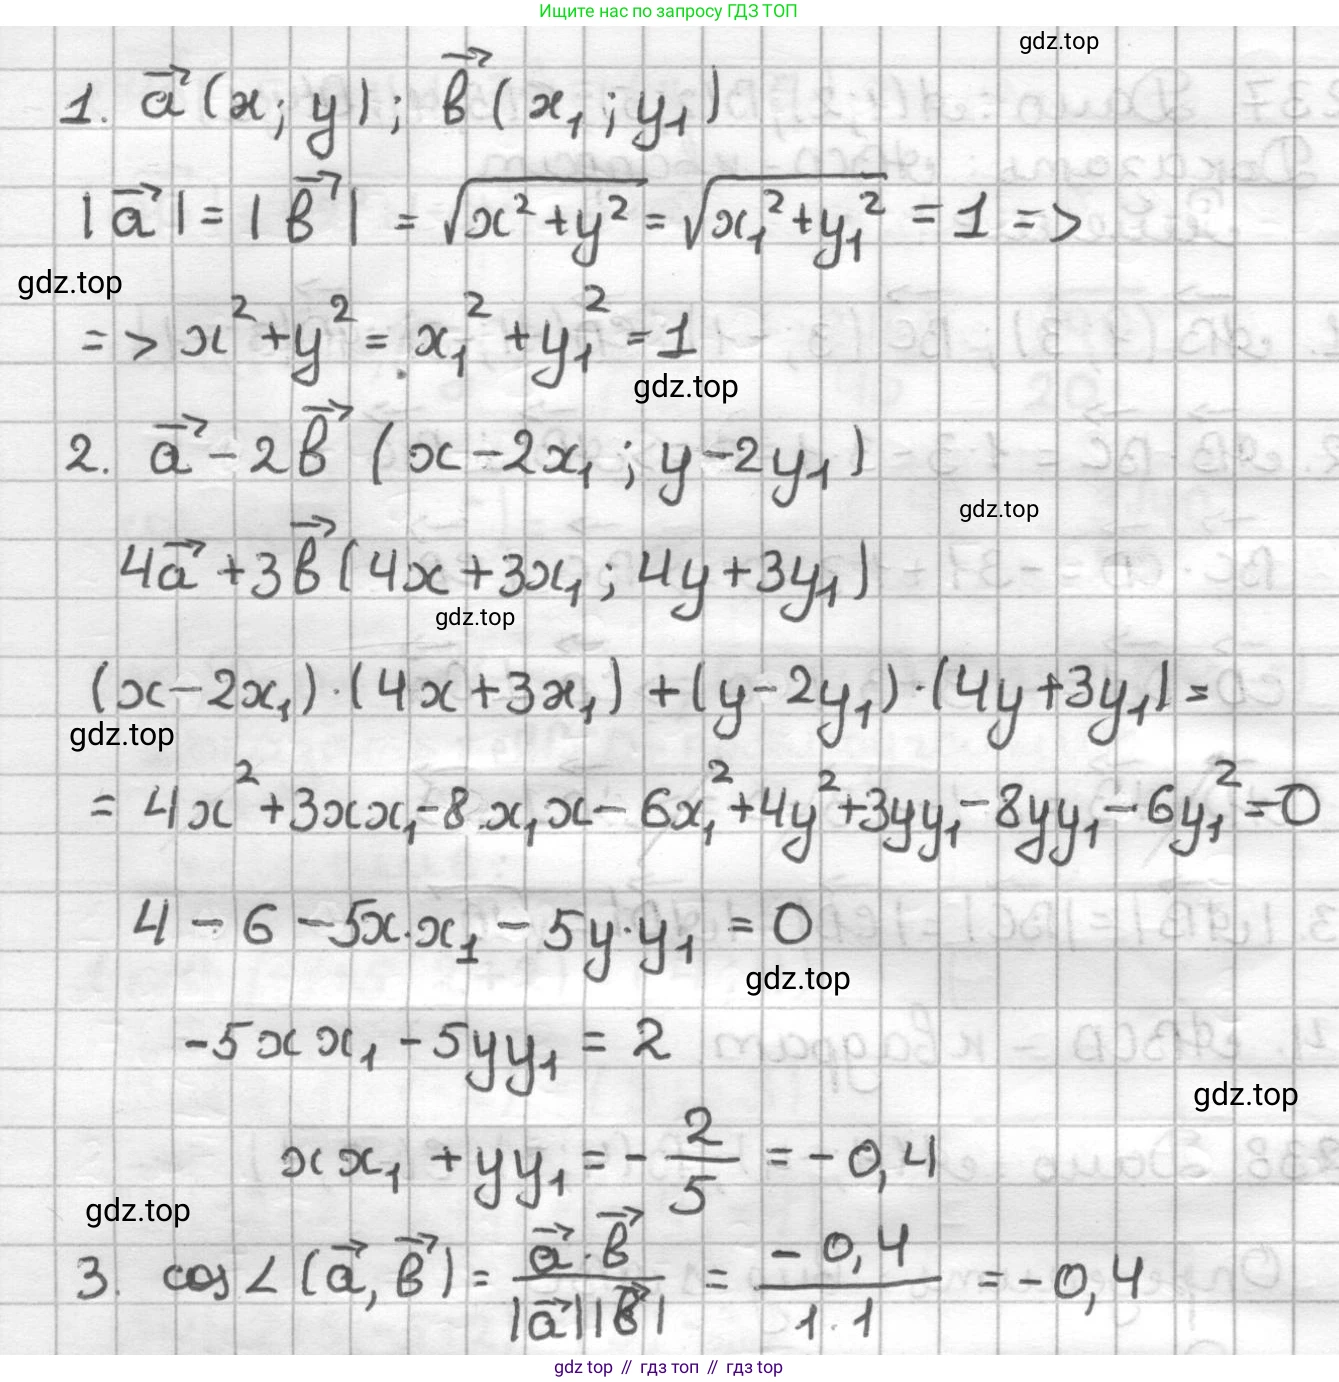 Ищите нас по запросу ГДЗ ТОП
gdz.top
1. a⃗ (x; y); b⃗ (x₁; y₁)
|a⃗| = |b⃗| = √(x² + y²) = √(x₁² + y₁²) = 1 =>
gdz.top
=> x² + y² = x₁² + y₁² = 1
gdz.top
2. a⃗ - 2b⃗ (x - 2x₁; y - 2y₁)
gdz.top
4a⃗ + 3b⃗ (4x + 3x₁; 4y + 3y₁)
gdz.top
(x - 2x₁) · (4x + 3x₁) + (y - 2y₁) · (4y + 3y₁) =
gdz.top
= 4x² + 3xx₁ - 8x₁x - 6x₁² + 4y² + 3yy₁ - 8yy₁ - 6y₁² = 0
4 - 6 - 5x·x₁ - 5y·y₁ = 0
gdz.top
-5xx₁ - 5yy₁ = 2
gdz.top
xx₁ + yy₁ = - 2/5 = -0,4
gdz.top
3. cos∠(a⃗, b⃗) = a⃗·b⃗ / |a⃗||b⃗| = -0,4 / 1·1 = -0,4
gdz top // гдз топ // гдз top